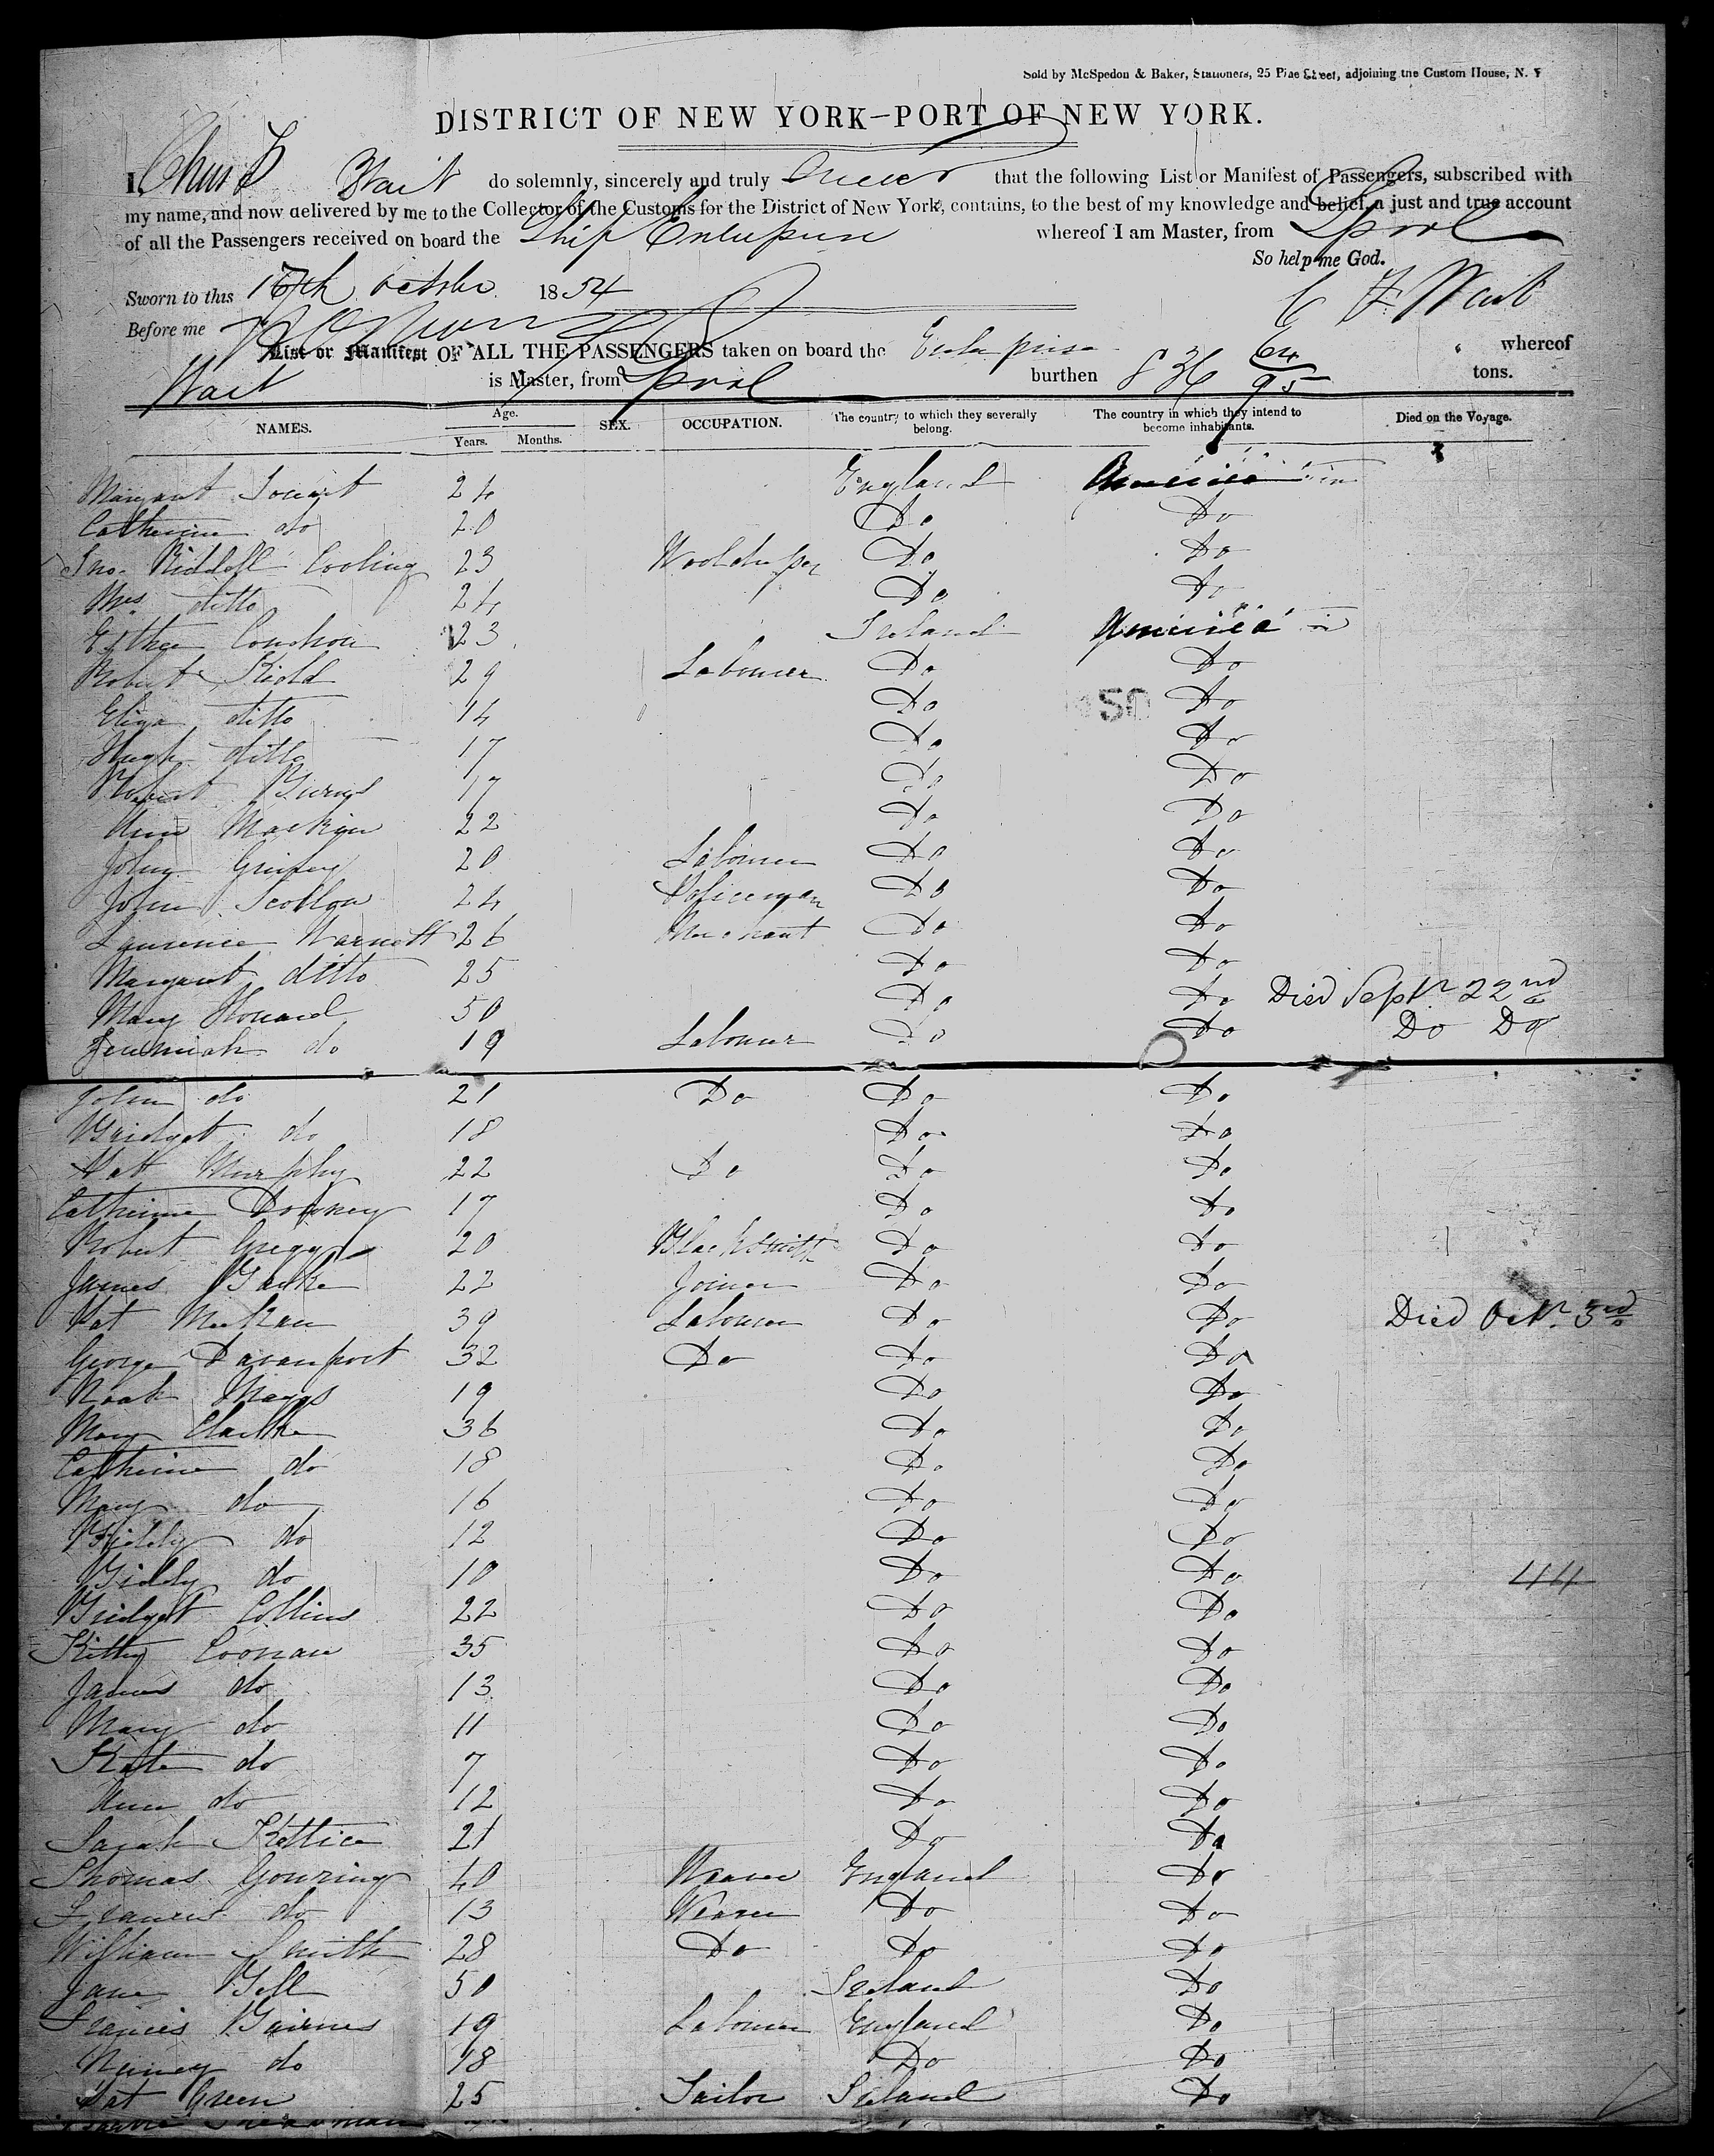 Sold by McSpedon & Baker, Stationers, 25 Pine Street, adjoining the Custom House, N. Y
DISTRICT OF NEW YORK—PORT OF NEW YORK.
I, Chas F Wait do solemnly, sincerely and truly Swear that the following List or Manifest of Passengers, subscribed with
my name, and now delivered by me to the Collector of the Customs for the District of New York, contains, to the best of my knowledge and belief, a just and true account
of all the Passengers received on board the Ship Enterprise whereof I am Master, from Lpool
So help me God.
Sworn to this 17th October 1854 C F Wait
Before me
List or Manifest OF ALL THE PASSENGERS taken on board the Enterprise whereof
Wait is Master, from Lpool burthen 836 64/95 tons.
NAMES. Age. Years. Months. SEX. OCCUPATION. The country to which they severally belong. The country in which they intend to become inhabitants. Died on the Voyage.
Margaret 24 England America
Catherine do 20 Do Do
Jno. Riddell Cooling 23 Do Do
Mrs ditto 24 Do Do
Esther 23 Ireland America
Robert Kidd 29 Labourer Do Do
Eliza ditto 14 Do Do
Hugh ditto 17 Do Do
Robert Burns 17 Do Do
Ann Mackin 22 Do Do
John 20 Labourer Do Do
John Scollow 24 Policeman Do Do
Laurence Warnett 26 Merchant Do Do
Margaret ditto 25 Do Do
Mary Howard 50 Do Do Died Sept. 22nd
Jeremiah do 19 Labourer Do Do Do Do
John do 21 Do Do Do
Bridget do 18 Do Do
Pat Murphy 22 Do Do Do
Catherine Downey 17 Do Do
Robert Gregg 20 Blacksmith Do Do
James 22 Joiner Do Do
Pat Meehan 39 Labourer Do Do Died Oct. 3rd
George Davenport 32 Do Do Do
Noah Maggs 19 Do Do
Mary Clarke 36 Do Do
Catherine do 18 Do Do
Mary do 16 Do Do
do 12 Do Do
Biddy do 10 Do Do 44
Bridget Collins 22 Do Do
Kitty Coonan 35 Do Do
James do 13 Do Do
Mary do 11 Do Do
Kate do 7 Do Do
Ann do 12 Do Do
Sarah Kettice 21 Do Do
Thomas Gouring 40 Weaver England Do
Frances do 13 Weaver Do Do
William Smith 28 Do Do Do
Jane Bell 50 Ireland Do
Francis Bairnes 19 Labourer England Do
Nancy do 18 Do Do
Pat Green 25 Tailor Ireland Do